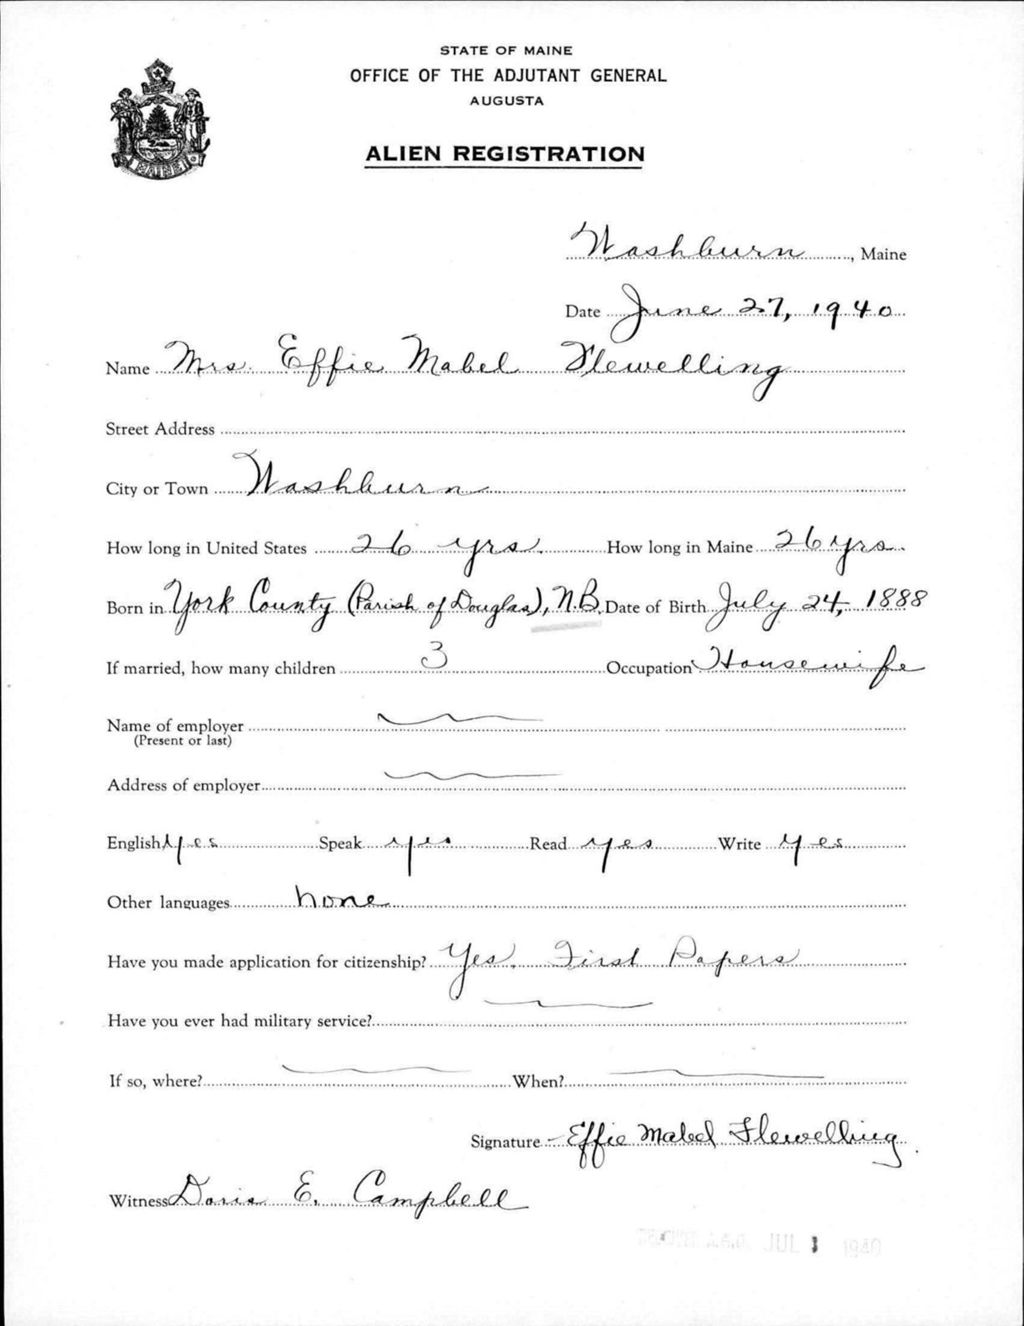 STATE OF MAINE
OFFICE OF THE ADJUTANT GENERAL
AUGUSTA
ALIEN REGISTRATION
MAINE
Washburn, Maine
Date June 27, 1940
Name Mrs. Effie Mabel Flewelling
Street Address
City or Town Washburn
How long in United States 26 yrs. How long in Maine 26 yrs.
Born in York County (Parish of Douglas), N.B. Date of Birth July 24, 1888
If married, how many children 3 Occupation Housewife
Name of employer
(Present or last)
Address of employer
English Yes Speak yes Read yes Write yes
Other languages none
Have you made application for citizenship? Yes. First Papers
Have you ever had military service?
If so, where? When?
Signature Effie Mabel Flewelling
Witness Doris E. Campbell
A.G.O. JUL 1940